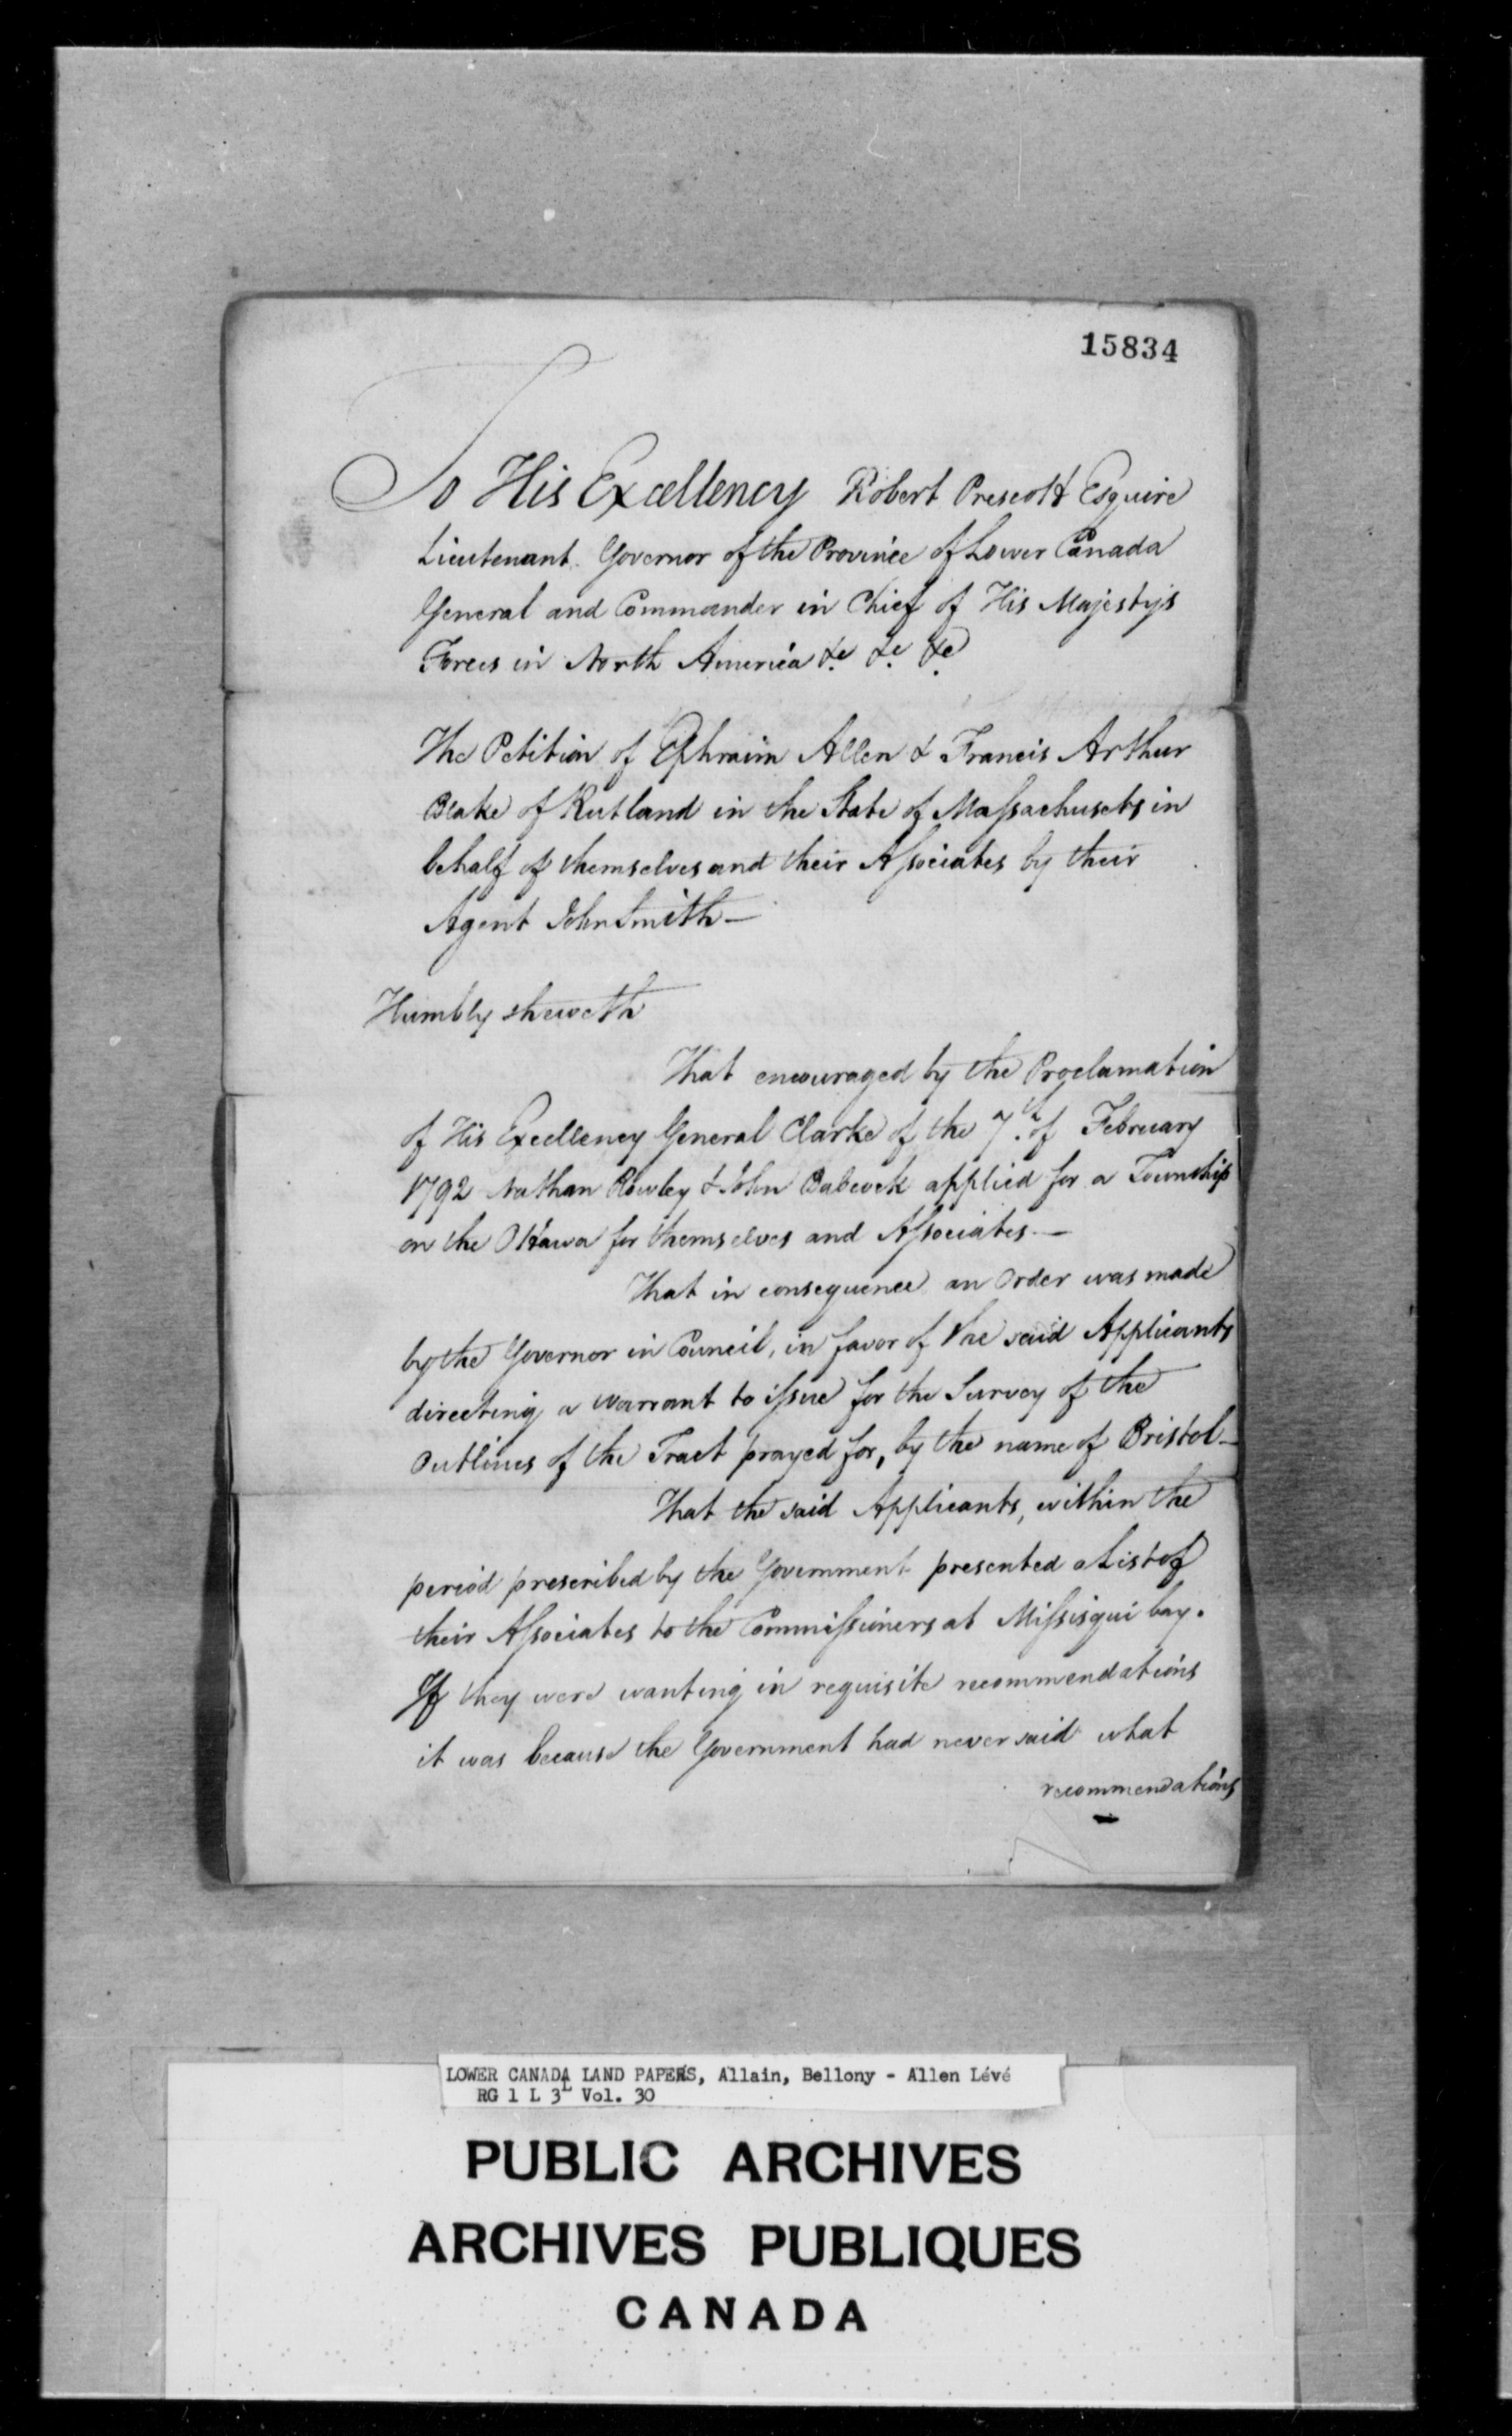 15834
To His Excellency Robert Prescott Esquire
Lieutenant Governor of the Province of Lower Canada
General and Commander in Chief of His Majestys
Forces in North America &c &c &c
The Petition of Ephraim Allen & Francis Arthur
Blake of Rutland in the State of Massachusets in
behalf of themselves and their Associates by their
Agent John Smith—
Humbly sheweth
That encouraged by the Proclamation
of His Excellency General Clarke of the 7th of February
1792 Nathan Rowley & John Babcock applied for a Township
on the Ottawa for themselves and Associates.—
That in consequence an Order was made
by the Governor in Council, in favor of the said Applicants
directing a warrant to issue for the Survey of the
Outlines of the Tract prayed for, by the name of Bristol—
That the said Applicants, within the
period prescribed by the Government presented a List of
their Associates to the Commissioners at Missisqui bay.
If they were wanting in requisite recommendations
it was because the Government had never said what
recommendations
LOWER CANADA LAND PAPERS, Allain, Bellony - Allen Lévé
RG 1 L 3L Vol. 30
PUBLIC ARCHIVES
ARCHIVES PUBLIQUES
CANADA